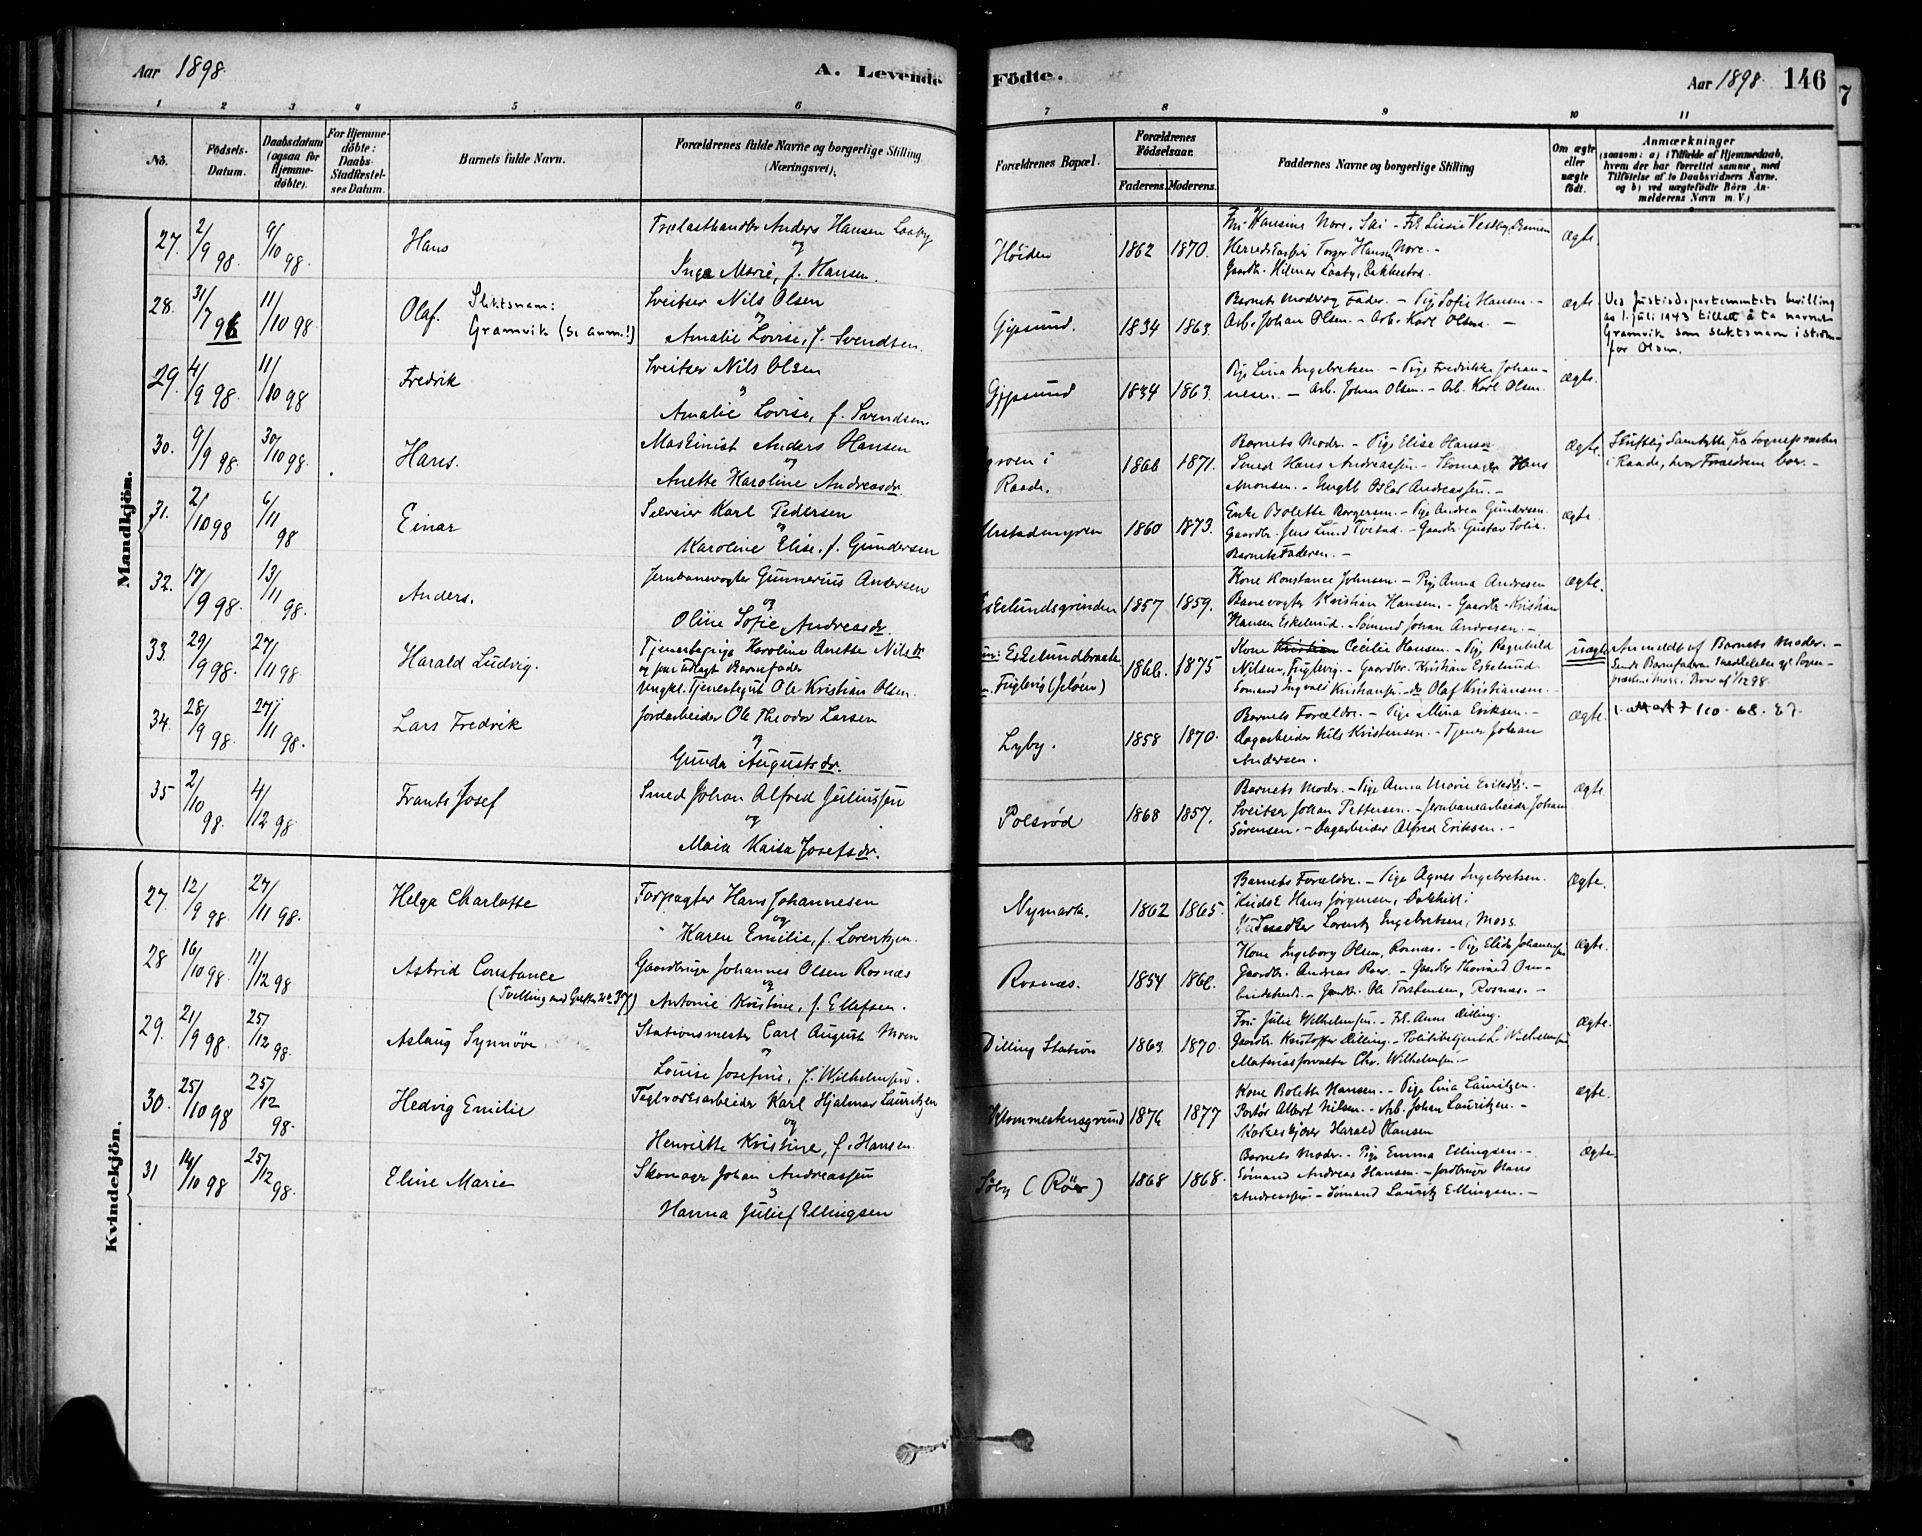 Aar 1898.
A. Levende Födte.
Aar 1898. 146
7
1 2 3 4 5 6 7 8 9 10 11
No.
Födsels-Datum.
Daabsdatum (ogsaa for Hjemmedöbte).
For Hjemmedöbte: Daabs-Stadfæstelses Datum.
Barnets fulde Navn.
Forældrenes fulde Navne og borgerlige Stilling (Næringsvei).
Forældrenes Bopæl.
Forældrenes Födselsaar.
Faderens. Moderens.
Faddernes Navne og borgerlige Stilling
Om ægte eller uægte födt.
Anmærkninger
(saasom: a) i Tilfælde af Hjemmedaab,
hvem der har forrettet samme, med
Tilföielse af to Daabsvidners Navne.
og b) ved uægtefödte Börn Anmelderens Navn m. V.)
Mandkjön.
27. 2/9 98. 9/10 98. Hans
Trælasthandler Anders Hansen Laaby
og
Inge Marie, f. Hansen.
Höiden 1862 1870.
Fru Hansine Nore, Ski - Frk Lissie Vestby,
Herredskasserer Torger Hansen Nore. -
Gaardbr. Hilmar Laaby, Rakkestad.
Ægte.
28. 31/7 96 11/10 98. Olaf. Slektsnavn:
Gramvik (se anm.!)
Sveitser Nils Olsen
og
Amalie Lovise, f. Svendsen.
Gipsund. 1834 1863.
Barnets Moder og Fader. - Pige Sofie Hansen. -
Arb. Johan Olsen. - Arb. Karl Olsen. -
ægte
Ved Justisdepartementets bevilling
av 1. juli 1943 tillatt å ta navnet
Gramvik som slektsnavn i steden-
for Olsen.
29. 4/9 98. 11/10 98 Fredrik
Sveitser Nils Olsen
og
Amalie Lovise, f. Svendsen
Gipsund 1834 1863.
Pige Lina Ingebretsen. - Pige Fredrikke Johan-
nesen. - Arb. Johan Olsen. - Arb. Karl Olsen.
Ægte.
30. 9/9 98. 30/10 98. Hans.
Maskinist Anders Hansen
og
Anette Karoline Andreasdr.
i
Raade. 1866 1871.
Barnets Moder. - Pige Elise Hansen
Smed Hans Andreassen. - Skomager Hans
Monsen. - Ungkl. Oskar Andreassen. -
Ægte.
Skriftlig Samtykke fra Sognepræsten
i Raade, hvor Forældrene bor. -
31. 2/10 98 6/11 98 Einar
Seleier Karl Pedersen
og
Karoline Elise, f. Gundersen
1860 1873.
Enke Bolette Borgersen. - Pige Andrea Gundersen.
Gaardbr. Jens Lund Tvetad. - Gaardbr. Gustav
Barnets Faderen. -
ægte.
32. 17/9 98. 13/11 98. Anders.
Jernbanevogter Gunnerius Andersen
og
Oline Sofie Andreasdr.
Eskelundsgrinden 1857 1859.
Kone Konstance Johnsen. - Pige Anna Andresen
Banevogter Kristian Hansen. - Gaardbr. Kristian
Hansen Eskelund. - Sömand Johan Andresen. -
Ægte.
33. 29/9 98. 27/11 98 Harald Ludvig.
Tjenestepige Karoline Anette Nilsdr
og som udlagt Barnefader
Ungkl. Tjenestegut Ole Kristian Olsen.
Eskelundbraaten
Fuglevig (Jelöen) 1866. 1875
Kone Kristian Cecilie Hansen. - Pige Ragnhild
Nilsen, Fuglevig. - Gaardbr. Kristian Eskelund.
Sömand Ingvald Kristiansen. - do Olaf Kristiansen. -
uægte
Anmeldt af Barnets Moder. -
34. 28/9 98. 27/11 98. Lars Fredrik
Jordarbeider Ole Theodor Larsen
og
Gunda Augustsdr.
Lyby. 1858 1870.
Barnets Forældre. - Pige Mina Eriksen. -
Dagarbeider Nils Kristensen. - Tjener Johan
Andersen.
Ægte.
35 2/10 98. 4/12 98. Frants Josef
Smed Johan Alfred Juliussen
og
Maia Kaisa Josefsdr.
Polsröd 1868 1857.
Barnets Moder. - Pige Anna Marie Eriksdr. -
Sveitser Johan Pettersen. - Jernbanearbeider Johan
Sörensen. - Dagarbeider Alfred Eriksen. -
Ægte
Kvindekjön.
27. 12/9 98. 27/11 98. Helga Charlotte
Forpagter Hans Johannesen
og
Karen Emilie, f. Lorentzen.
Nymark. 1862 1865.
Barnets Forældre. - Pige Agnes Ingebretsen.
Hans Jörgensen,
Lorentz Ingebretsen, Moss
Ægte.
28 16/10 98. 11/12 98 Astrid Constance
(Tvilling med Gutten No. 37)
Gaardbruger Johannes Olsen Rosnæs
og
Antonie Kristine, f. Ellefsen.
Rosnæs. 1854 1860.
Kone Ingeborg Olsen, Rosnæs. - Pige Elida Johannesen
Gaardbr. Andreas Roer. - Gaardbr.
Ole Torstensen, Rosnæs. -
Ægte.
29. 21/9 98. 25/12 98. Aslaug Synnöve
Stationsmester Carl August Moen
og
Louise Josefine, f. Wilhelmsen.
Dilling Station 1863. 1870.
Fru Julie Wilhelmsen. - Frk. Anna Dilling.
Gaardbr. Kristoffer Dilling. - Politibetjent L. Wilhelmsen
Materialforvalter Chr. Wilhelmsen. -
Ægte.
30. 25/10 98 25/12 98. Hedvig Emilie
Teglverksarbeider Karl Hjalmar Lauritzen
og
Henriette Kristine, f. Hansen.
Klommestensgrund 1876 1877
Kone Bolette Hansen. - Pige Lina Lauritzen.
Portör Albert Nilsen. - Arb. Johan Lauritzen. -
Harald Hansen
Ægte.
31 14/10 98 25/12 98. Eline Marie
Skomager Johan Andreassen
og
Hanna Julie f Ellingsen
Söby (Röer) 1868 1868.
Barnets Moder. - Pige Emma Ellingsen. -
Sömand Andreas Hansen. - Jordbruger Hans
Andreassen. - Sömand Lauritz Ellingsen. -
Ægte